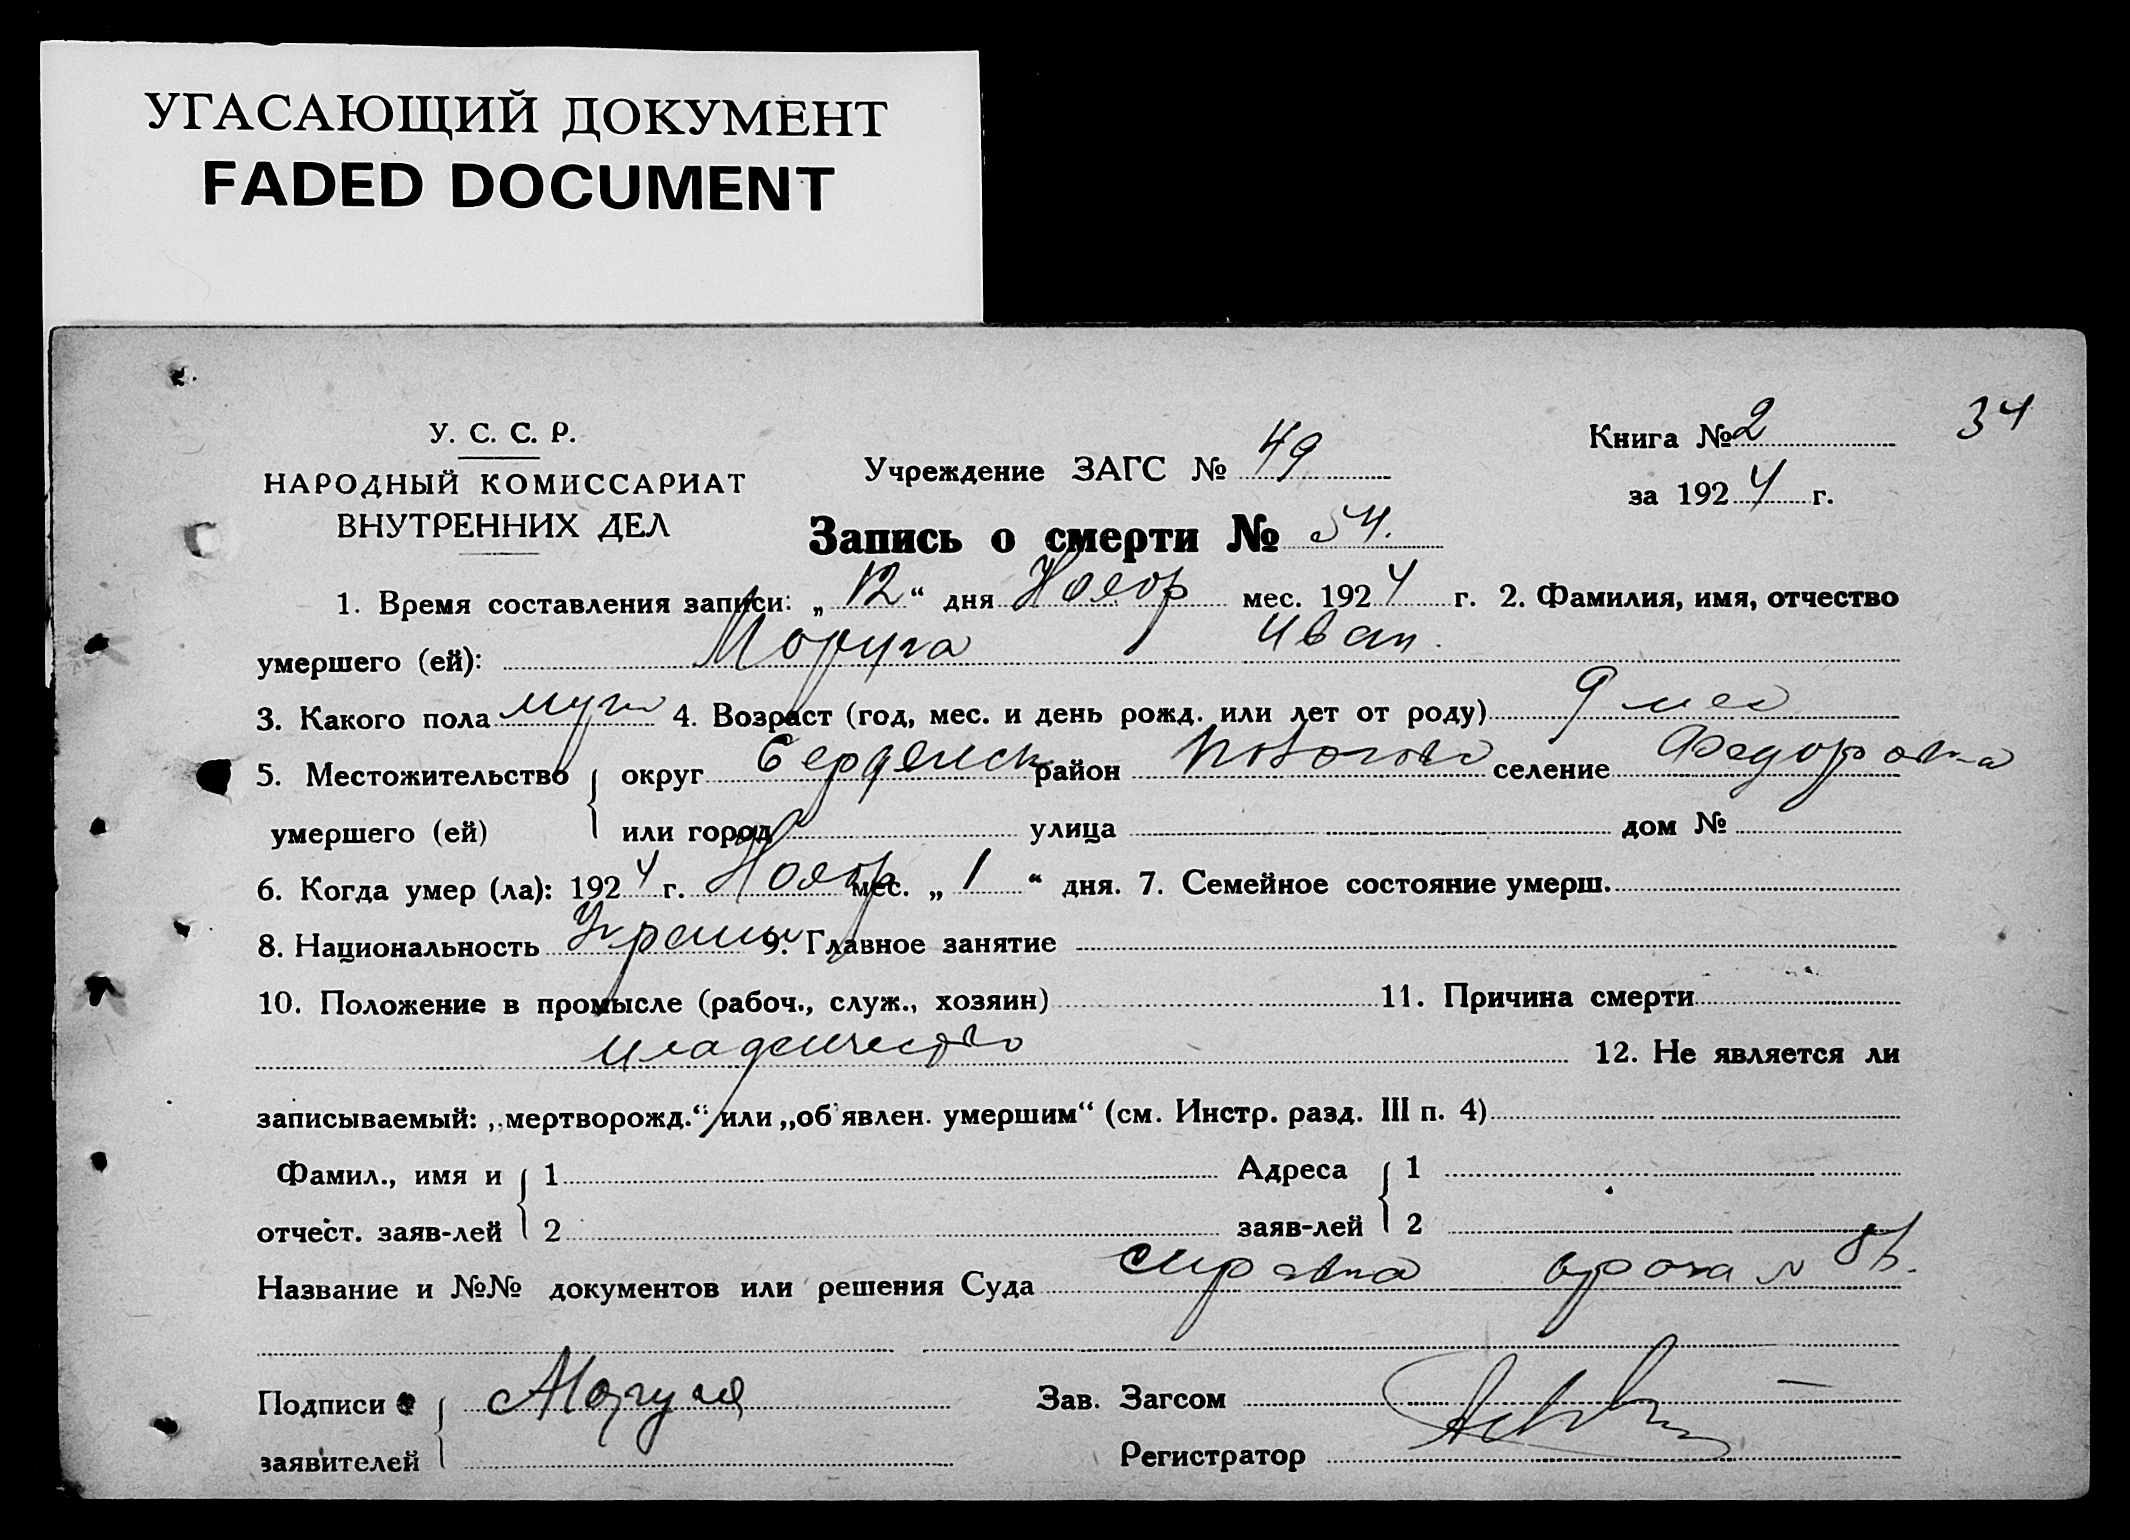 УГАСАЮЩИЙ ДОКУМЕНТ
FADED DOCUMENT
У. С. С. Р.
НАРОДНЫЙ КОМИССАРИАТ
ВНУТРЕННИХ ДЕЛ
Учреждение ЗАГС № 49
Книга № 2
34
за 1924 г.
Запись о смерти № 54.
1. Время составления записи: „12“ дня Ноябр мес. 1924 г. 2. Фамилия, имя, отчество
умершего (ей): Моруга Иван.
3. Какого пола муж 4. Возраст (год, мес. и день рожд. или лет от роду) 9 мес
5. Местожительство округ Бердянск район селение Федоровка
умершего (ей) или город улица дом №
6. Когда умер (ла): 1924 г. Ноябр мес. „1“ дня. 7. Семейное состояние умерш.
8. Национальность Украин 9. Главное занятие
10. Положение в промысле (рабоч., служ., хозяин) 11. Причина смерти
младенчество 12. Не является ли
записываемый: „мертворожд.“ или „об'явлен. умершим“ (см. Инстр. разд. III п. 4)
Фамил., имя и 1 Адреса 1
отчест. заяв-лей 2 заяв-лей 2
Название и №№ документов или решения Суда справка врача №
Подписи Моруга Зав. Загсом
заявителей Регистратор